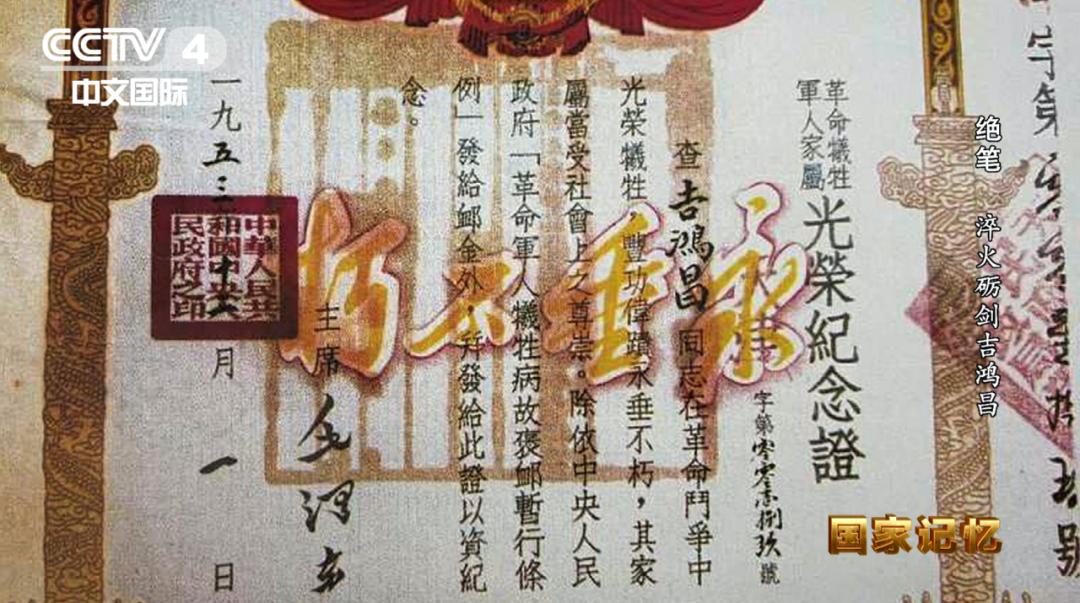 CCTV 4
中文国际
革命犧牲
軍人家屬
光榮紀念證
字第零零壱捌玖號
查吉鴻昌同志在革命鬥爭中
光榮犧牲,豐功偉蹟永垂不朽,其家
屬當受社會上之尊崇。除依中央人民
政府「革命軍人犧牲病故褒卹暫行條
例」發給卹金外,幷發給此證以資紀
念。
主席 毛澤東
一九五三
月一日
中華人民共
和國中央人
民政府之印
永垂不朽
绝笔 淬火砺剑吉鸿昌
国家记忆